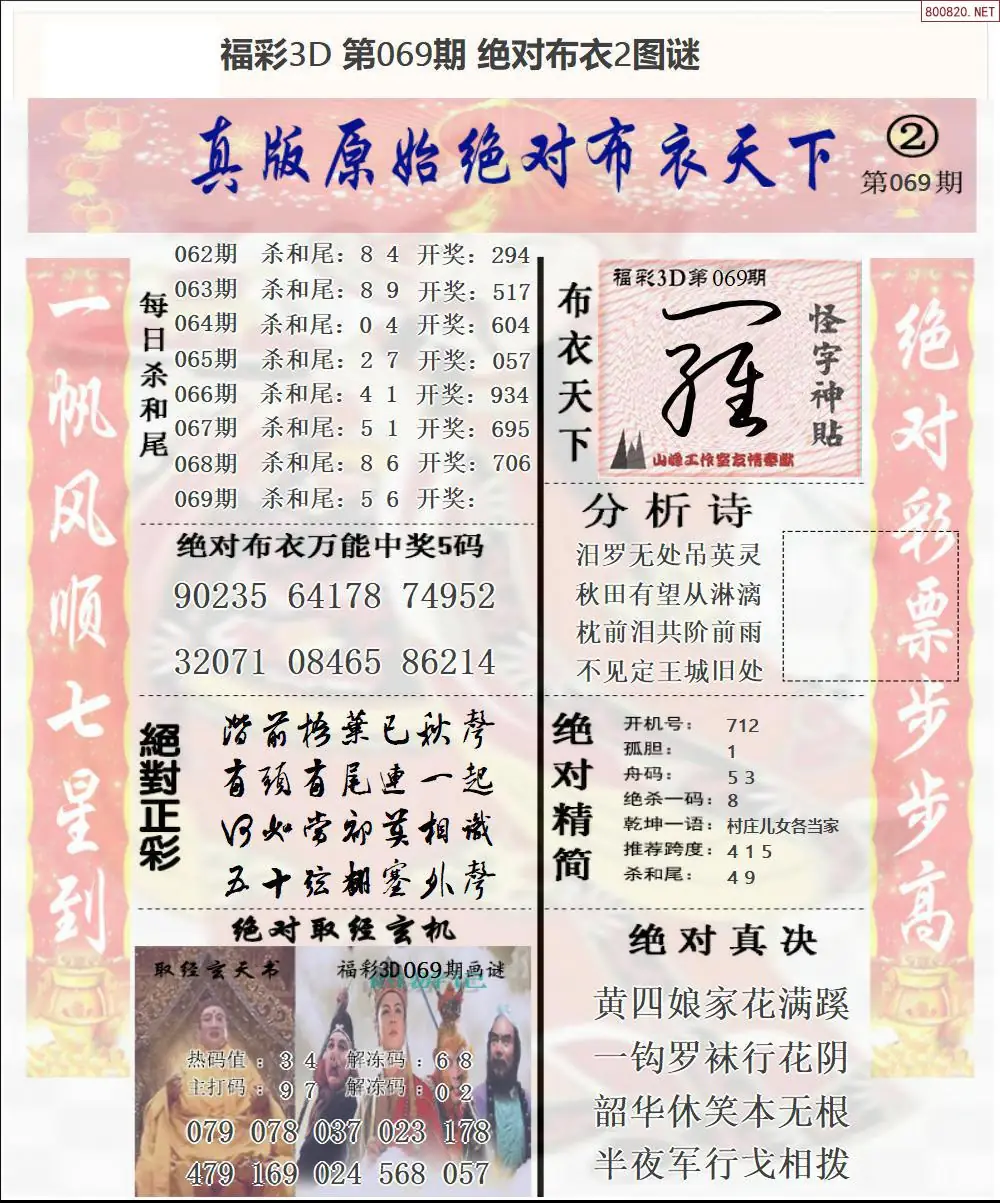 800820.NET
福彩3D 第069期 绝对布衣2图谜
真版原始绝对布衣天下
②
第069期
一帆风顺七星到
每日杀和尾
062期 杀和尾：8 4 开奖：294
063期 杀和尾：8 9 开奖：517
064期 杀和尾：0 4 开奖：604
065期 杀和尾：2 7 开奖：057
066期 杀和尾：4 1 开奖：934
067期 杀和尾：5 1 开奖：695
068期 杀和尾：8 6 开奖：706
069期 杀和尾：5 6 开奖：
绝对布衣万能中奖5码
90235 64178 74952
32071 08465 86214
絕對正彩
階前梧葉已秋聲
有頭有尾連一起
何必當初莫相識
五十弦翻塞外聲
绝对取经玄机
取经玄天书
福彩3D069期画谜
热码值：3 4 解冻码：6 8
主打码：9 7 解冻码：0 2
079 078 037 023 178
479 169 024 568 057
布衣天下
福彩3D第069期
怪字神貼
山峰工作室友情奉献
分析诗
汨罗无处吊英灵
秋田有望从淋漓
枕前泪共阶前雨
不见定王城旧处
绝对精简
开机号：712
孤胆：1
舟码：5 3
绝杀一码：8
乾坤一语：村庄儿女各当家
推荐跨度：4 1 5
杀和尾：4 9
绝对真决
黄四娘家花满蹊
一钩罗袜行花阴
韶华休笑本无根
半夜军行戈相拨
绝对彩票步步高